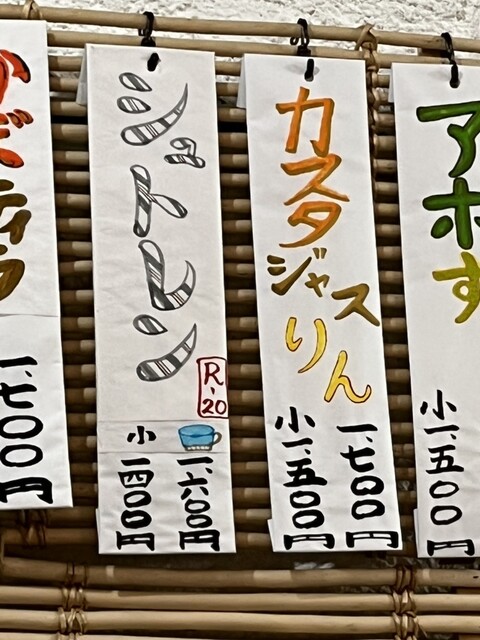 アホ
す
小一、五〇〇円
カスタ
ジャス
りん
一、七〇〇円
小一、五〇〇円
シュトレン
R-20
一、六〇〇円
小
一四〇〇円
一、七〇〇円